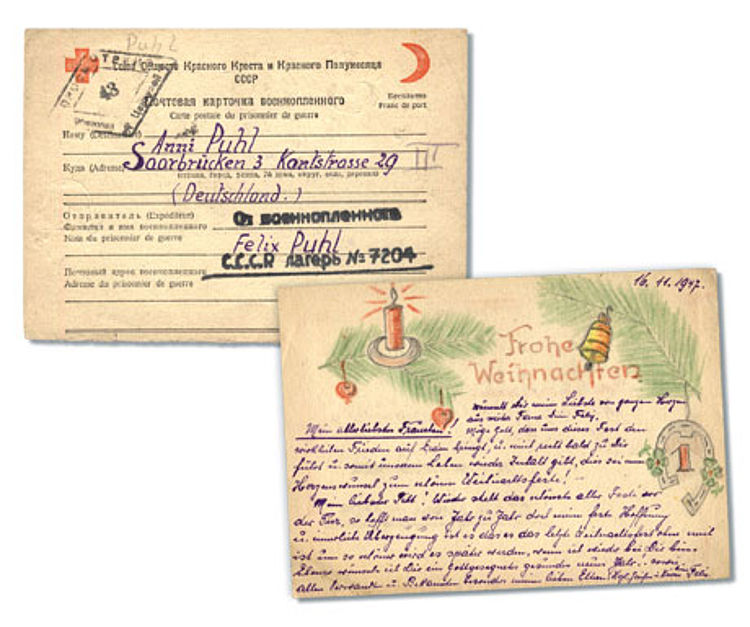 Puhl
Союз Обществ Красного Креста и Красного Полумесяца
СССР
43
Почтовая карточка военнопленного
Carte postale du prisonnier de guerre
Бесплатно
Franc de port
Кому (Destinataire)
Anni Puhl
Куда (Adresse)
Saarbrücken 3 Kantstrasse 29
III
(Deutschland.)
Отправитель (Expéditeur)
От военнопленного
Фамилия и имя военнопленного
Nom du prisonnier de guerre
Felix Puhl
С.С.С.Р лагерь №7204
Почтовый адрес военнопленного
Adresse du prisonnier de guerre
16. 11. 1947.
Frohe
Weihnachten
wünscht dir mein Liebste von ganzem Herzen
aus weiter Ferne dein Felix,
Mein allerliebstes Frauchen!
Möge Gott, dass uns dieses Fest den
wirklichen Frieden auf Erden bringt, u. mich recht bald zu Dir
führt u. somit unserem Leben wieder Inhalt gibt, dies sei mein
Herzenswunsch zum schönen Weihnachtsfeste!
1
Mein liebster! Wieder steht das schönste aller Feste vor
der Tür, so hofft man von Jahr zu Jahr doch meine feste Hoffnung
u. innerliche Überzeugung ist es das es das letzte Weihnachtsfest ohne mich
ist um so schöner wird es später werden, wenn ich wieder bei Dir bin.
Ebenso wünsche ich Dir ein Gottgesegnetes gesundes neues Jahr.
allen Verwandten u. Bekannten besonders meinen lieben Eltern Felix